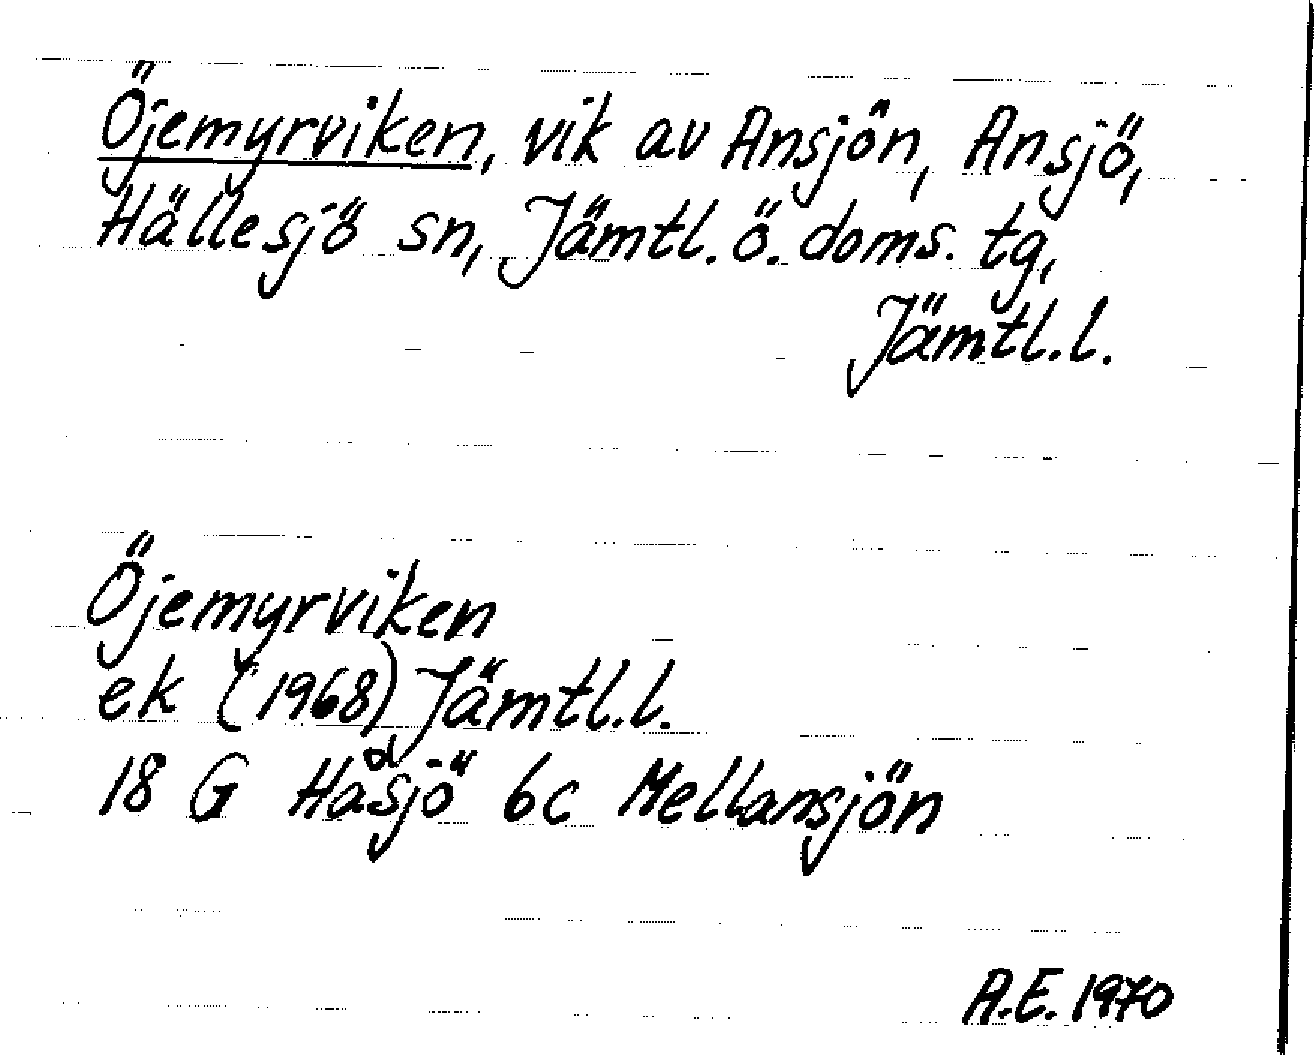 Öjemyrviken, vik av Ansjön, Ansjö,
Hällesjö sn, Jämtl. ö. doms. tg,
Jämtl. l.
Öjemyrviken
ek (1968) Jämtl. l.
18 G Håsjö 6c Mellansjön
A.E. 1970